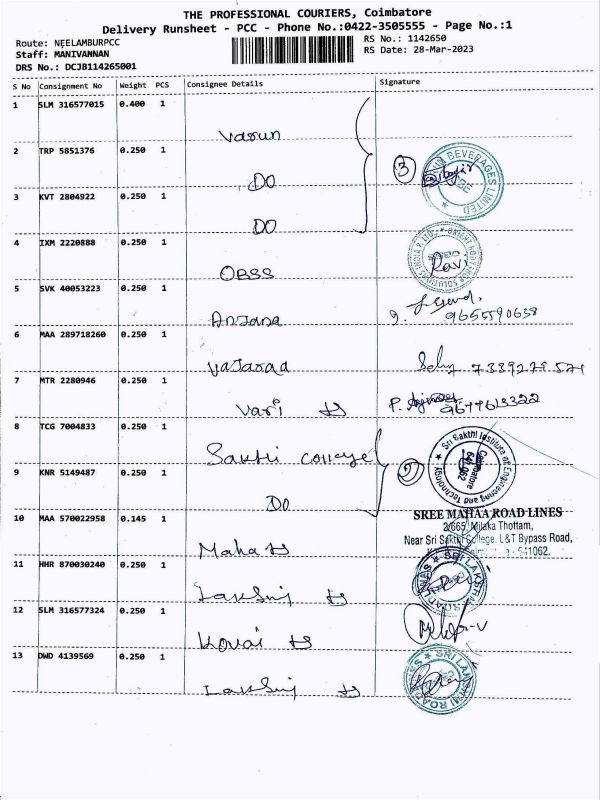 THE PROFESSIONAL COURIERS, Coimbatore
Delivery Runsheet - PCC - Phone No.:0422-3505555 - Page No.:1
Route: NEELAMBURPCC
Staff: MANIVANNAN
DRS No.: DCJB114265001
RS No.: 1142650
RS Date: 28-Mar-2023
S No Consignment No Weight PCS Consignee Details Signature
1 SLM 316577015 0.400 1
Varun
2 TRP 5851376 0.250 1
DO
3 BEVERAGES LIMITED
3 KVT 2804922 0.250 1
DO
4 IXM 2220888 0.250 1
OBSS
Ravi
5 SVK 40053223 0.250 1
Anjana
9655590638
6 MAA 289718260 0.250 1
7339279571
7 MTR 2280946 0.250 1
Vari
9677613322
8 TCG 7004833 0.250 1
Sakthi college
2 Sri Sakthi Institute of Engineering and Technology
Coimbatore
641 062
9 KNR 5149487 0.250 1
DO
10 MAA 570022958 0.145 1
Maha
SREE MAHAA ROAD LINES
2/665, Milaka Thottam,
Near Sri Sakthi College, L&T Bypass Road,
641062.
11 HHR 870030240 0.250 1
SRI LAKSHMI ROAD LINES
12 SLM 316577324 0.250 1
Kovai
13 DWD 4139569 0.250 1
SRI LAKSHMI ROAD LINES